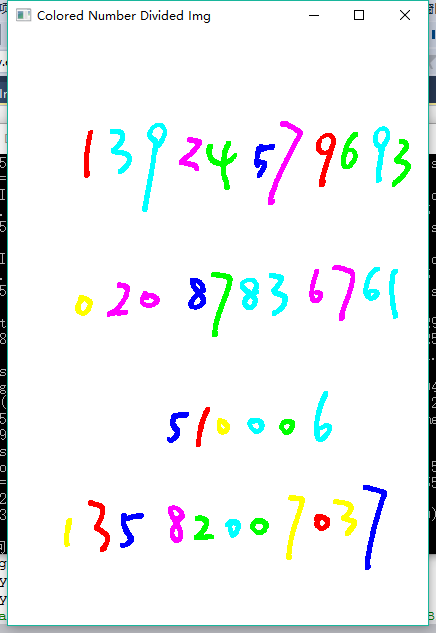 Colored Number Divided Img
13924579693
02087836761
510006
13582007037